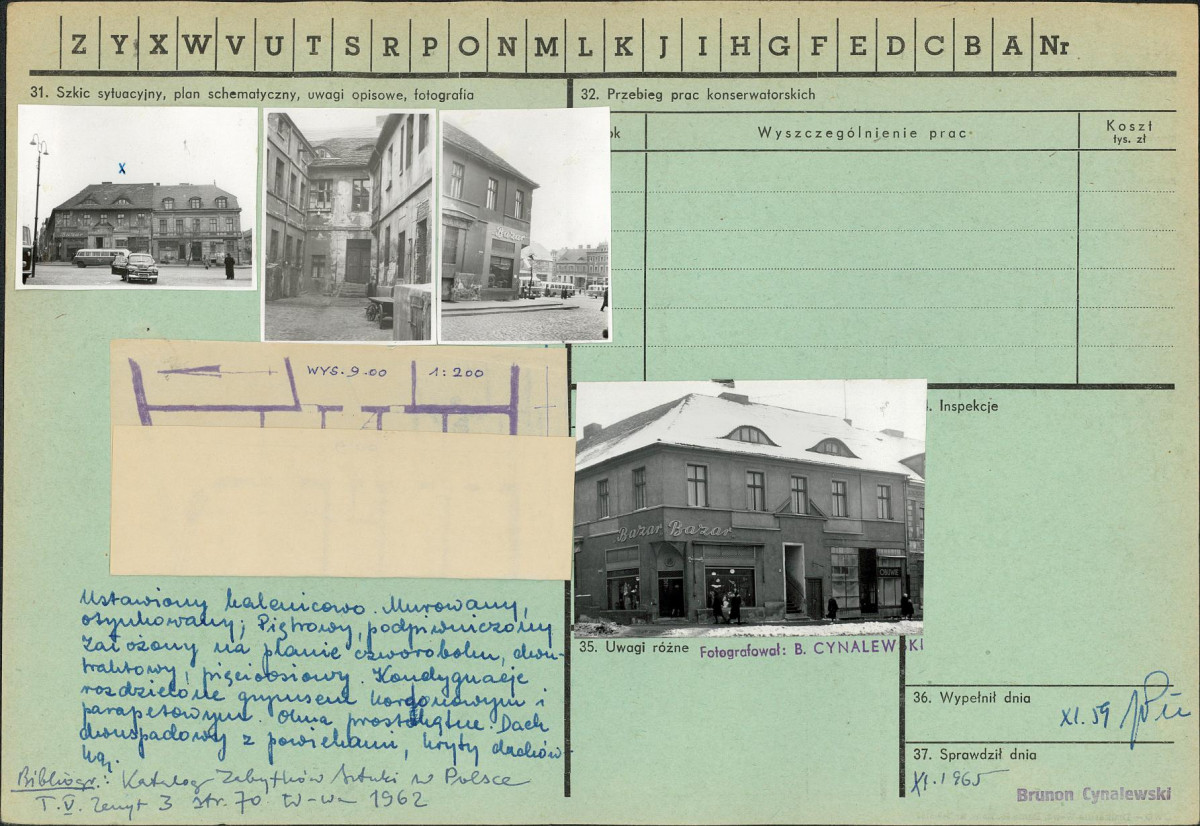 Z Y X W V U T S R P O N M L K J I H G F E D C B A Nr
31. Szkic sytuacyjny, plan schematyczny, uwagi opisowe, fotografia
32. Przebieg prac konserwatorskich
ok
Wyszczególnienie prac
Koszt
tys. zł
x
Bazar
WYS. 9.00
1:200
Inspekcje
Bazar Bazar
OBUWIE
Ustawiony kalenicowo. Murowany,
otynkowany; Piętrowy, podpiwniczony
Założony na planie czworoboku, dwu-
traktowy, pięcioosiowy. Kondygnacje
rozdzielone gzymsem kordonowym i
parapetowym. Okna prostokątne. Dach
dwuspadowy z powiekami, kryty dachów-
ką.
Bibliogr.: Katalog Zabytków Sztuki w Polsce
T.V. Zeszyt 3 str. 70 W-wa 1962
35. Uwagi różne
Fotografował: B. CYNALEWSKI
36. Wypełnił dnia
XI.59
37. Sprawdził dnia
XI.1965
Brunon Cynalewski